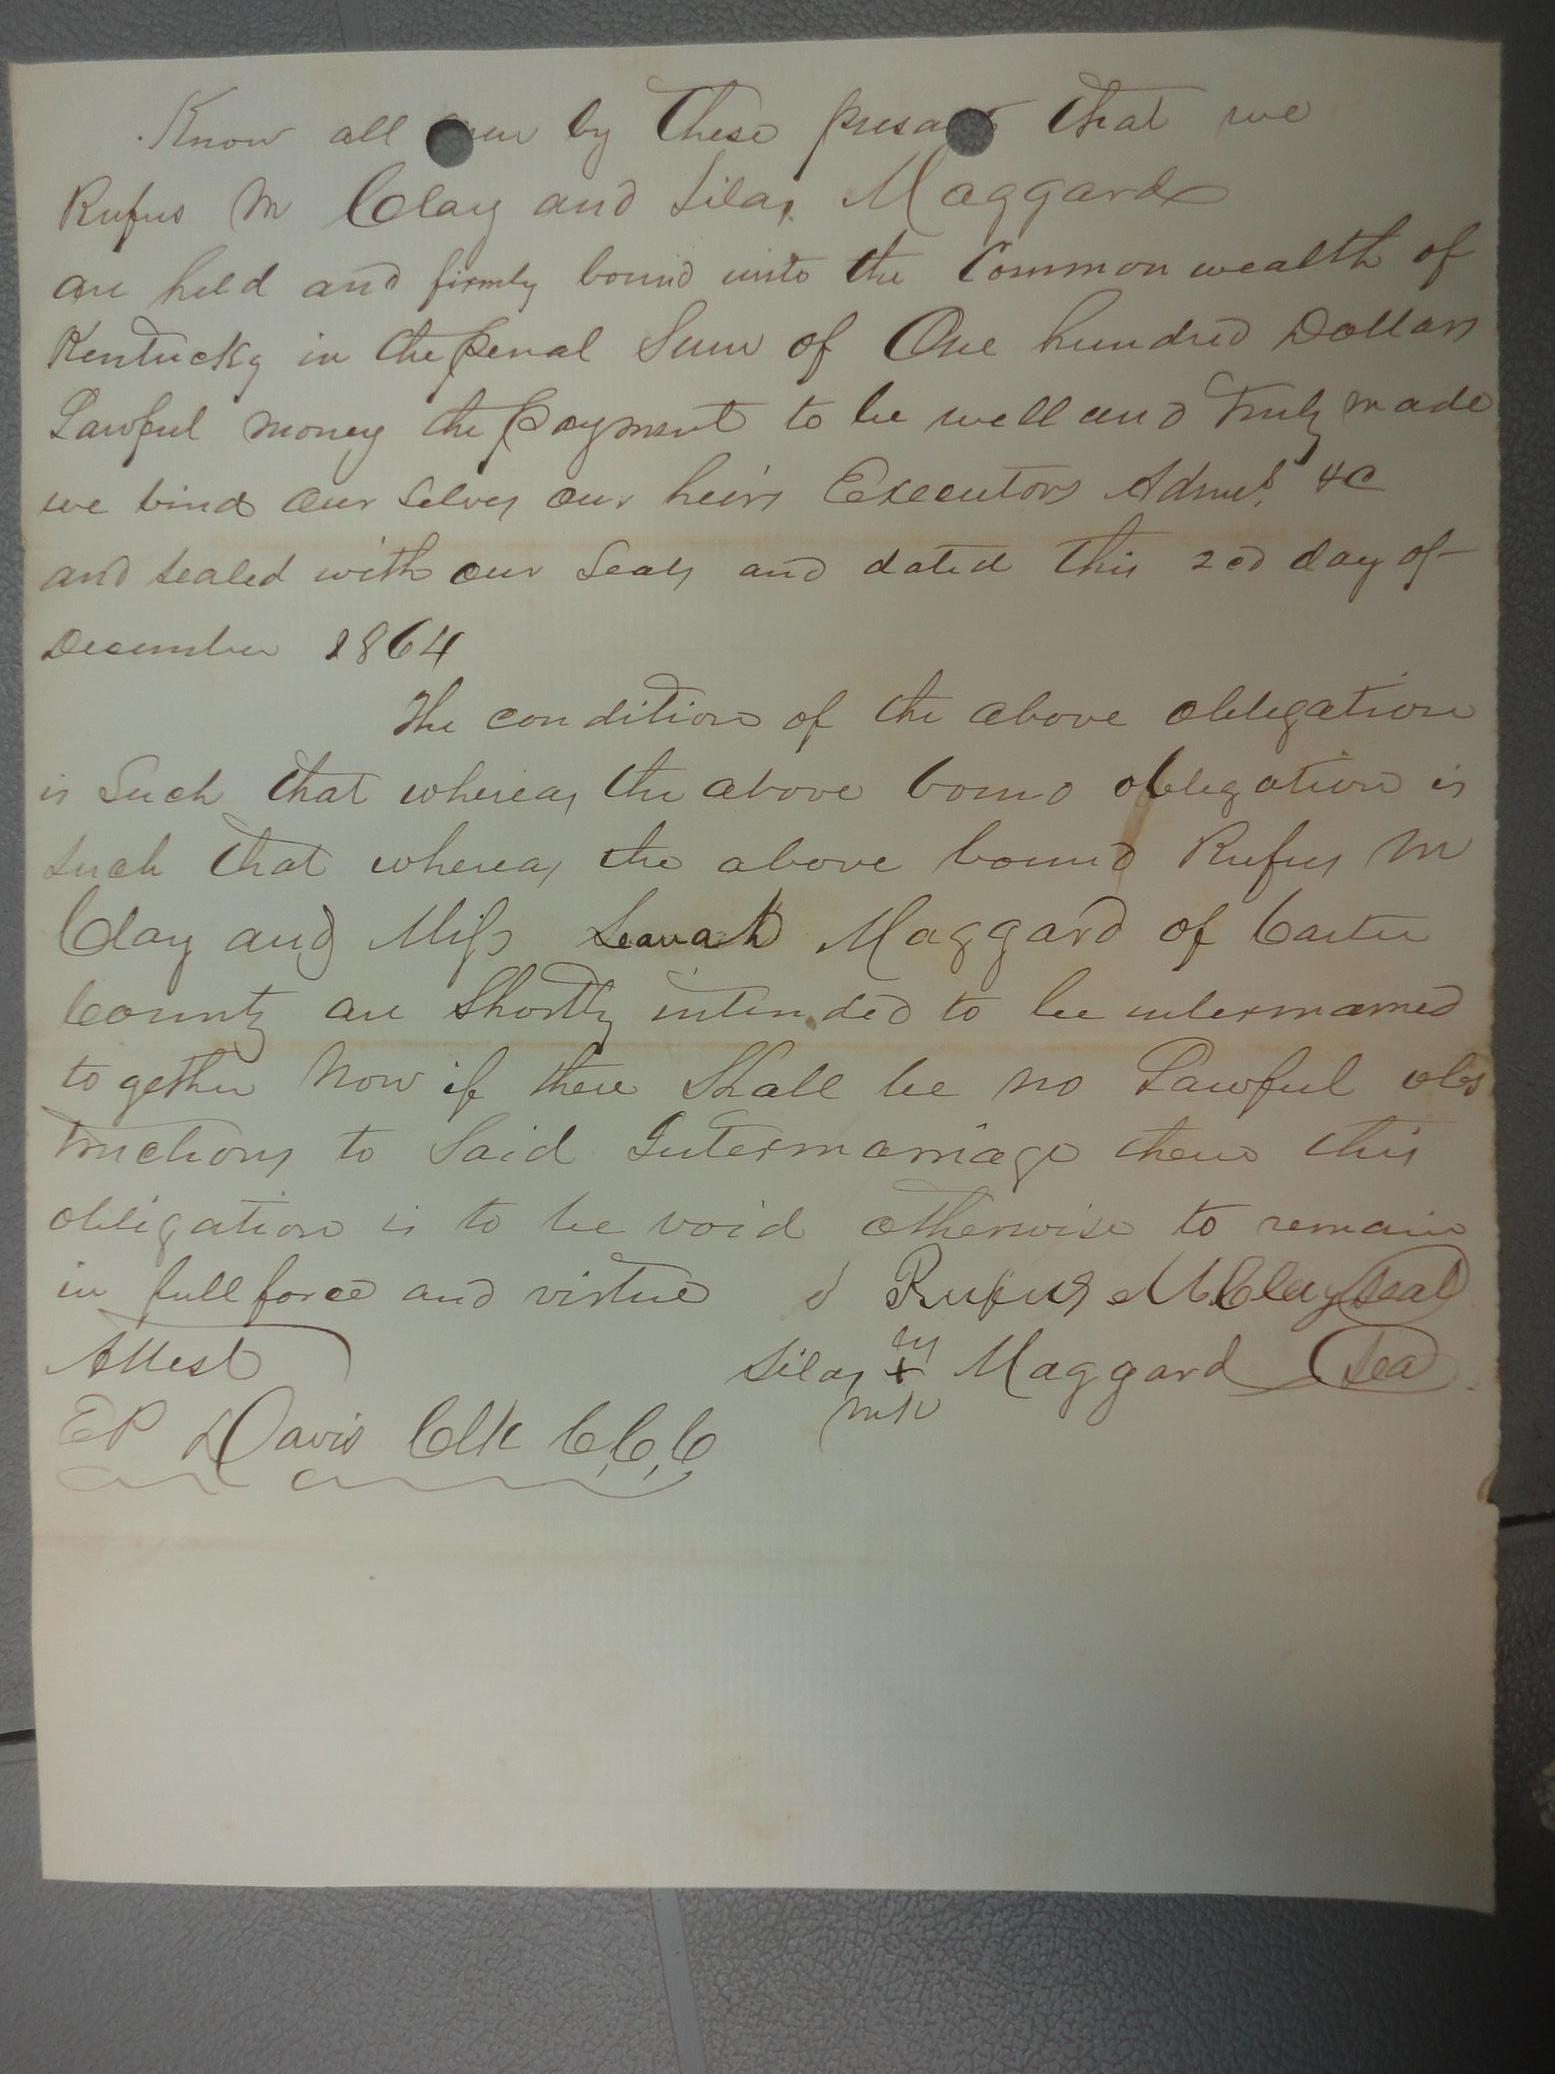 Know all men by these presants that we
Rufus M Clay and Silas Maggard
are held and firmly bound unto the Common wealth of
Kentucky in the penal Sum of One hundred Dollars
Lawful money the payment to be well and truly made
we bind our selves our heirs Executors Adms. &C
and sealed with our seals and dated this 2cd day of
December 1864
The condition of the above obligation
is Such that whereas the above bound obligation is
such that whereas the above bound Rufus M
Clay and Miss Leanah Maggard of Carter
County are Shortly intended to be intermarried
to gether Now if there Shall be no Lawful obs
tructions to Said Intermarriage then this
obligation is to be void otherwise to remain
in full force and virtue Rufus M Clay Seal
Attest Silas X Maggard Seal
EP Davis Clk C,C,C